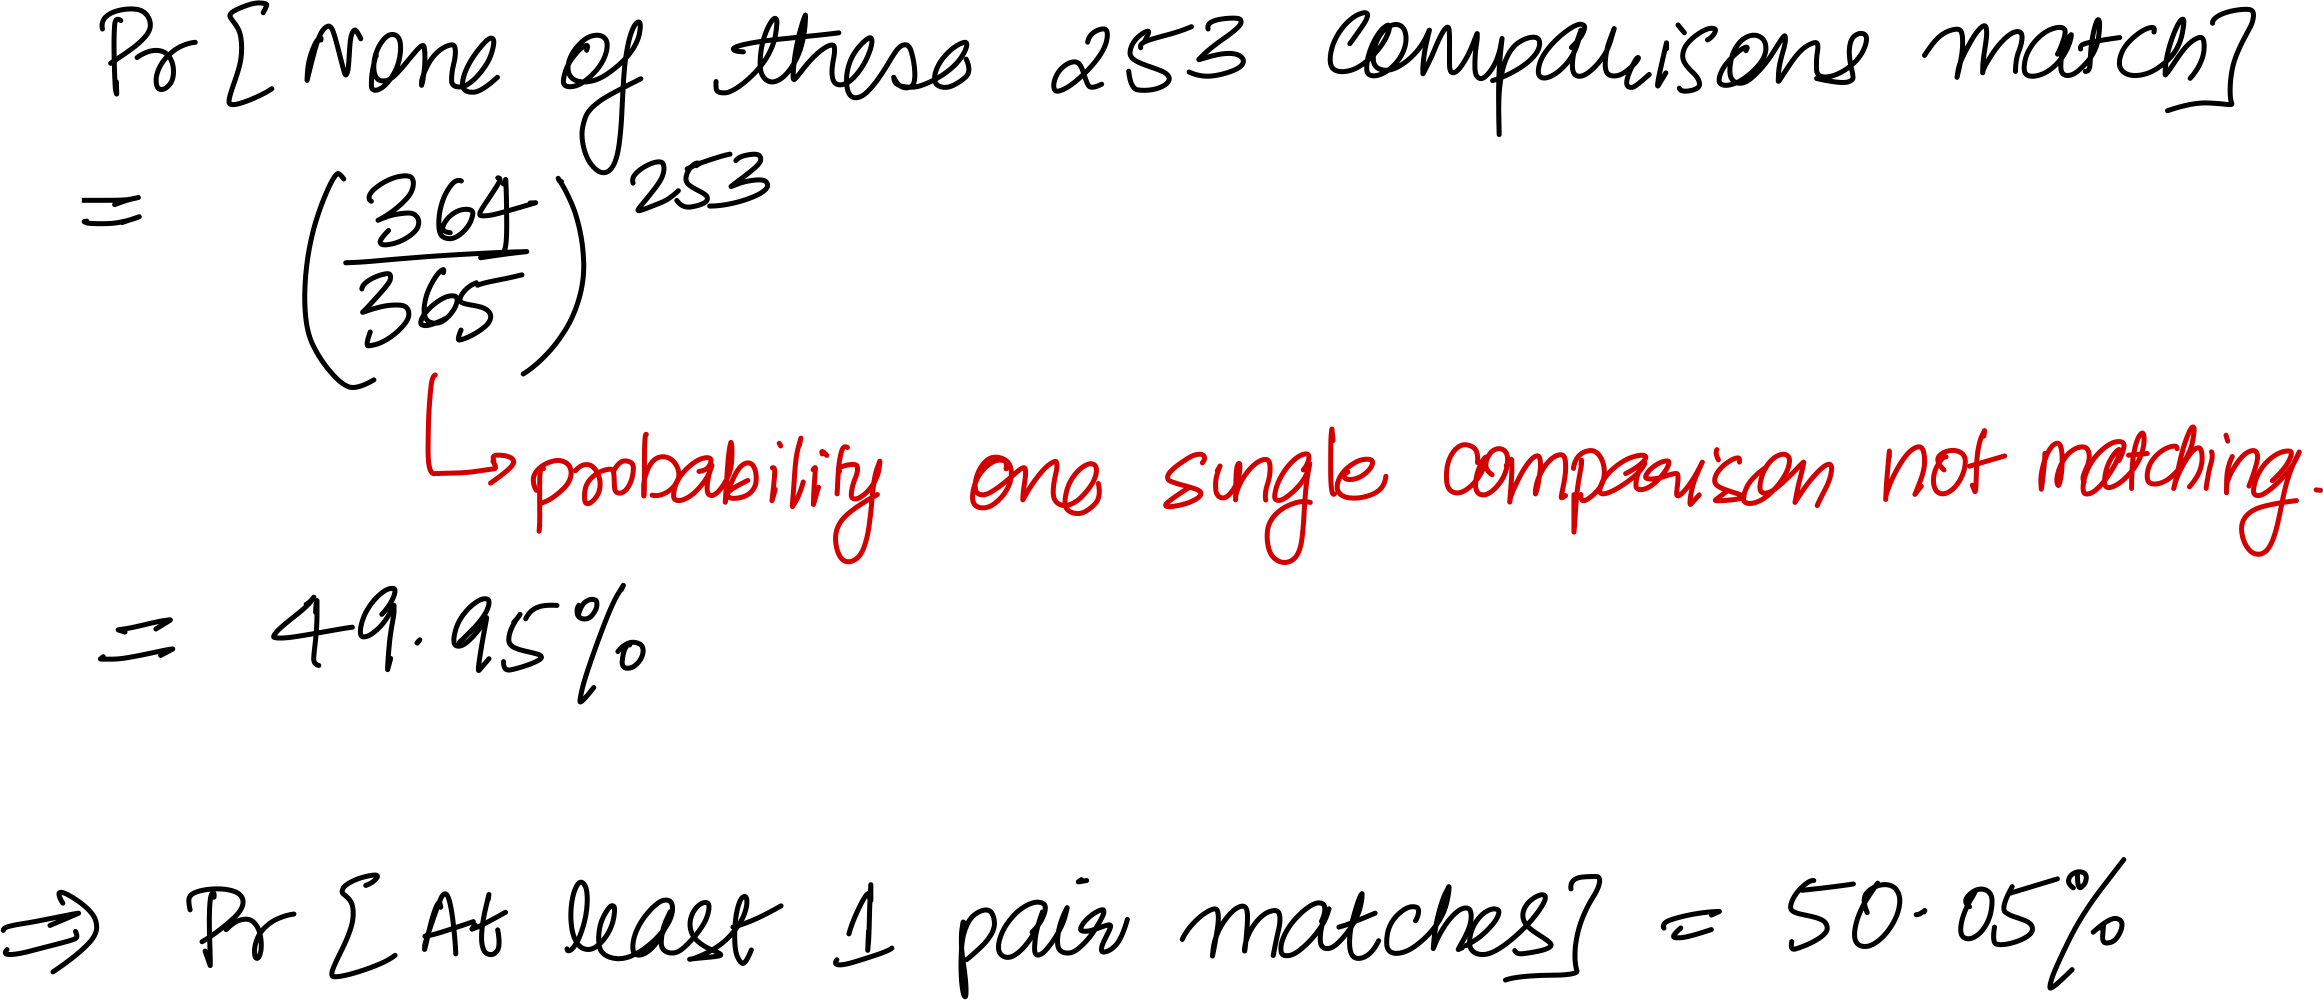 Pr [None of these 253 comparisons match]
= (364/365)^253
↳ probability one single comparison not matching.
= 49.95%
⇒ Pr [At least 1 pair matches] = 50.05%